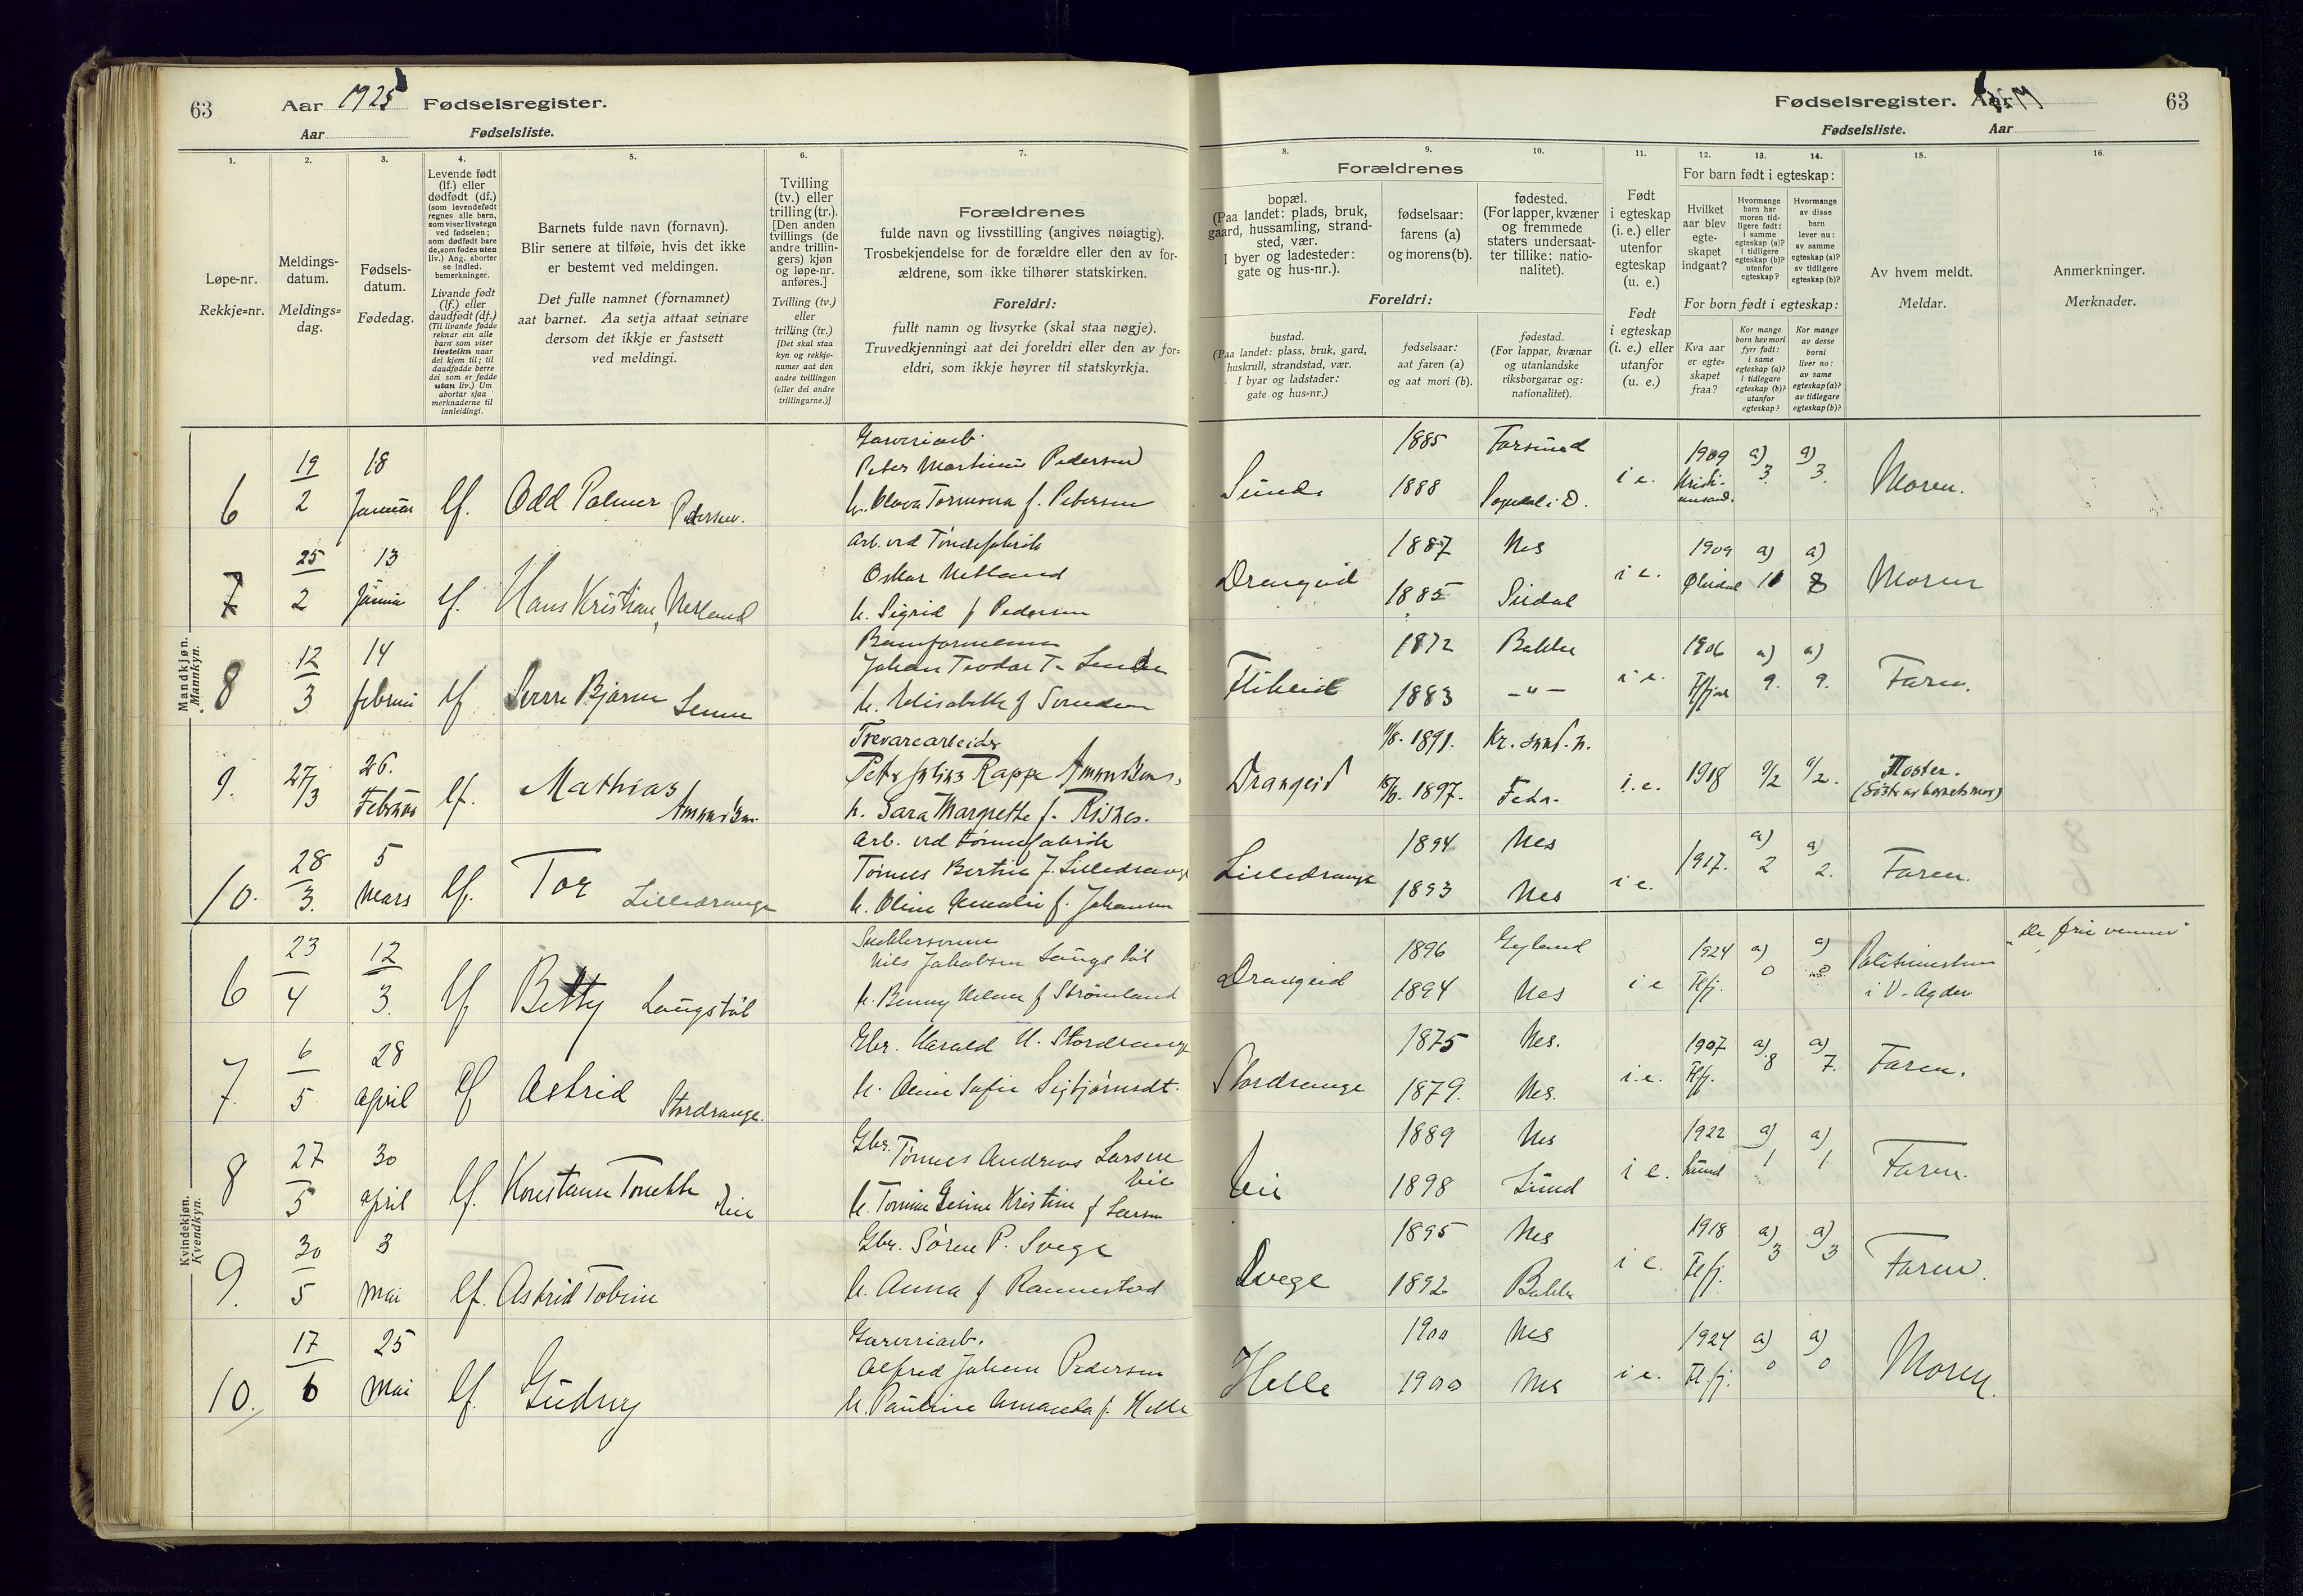 63
Aar 1925 Fødselsregister.
Aar Fødselsliste.
Fødselsregister. Aar
63
Fødselsliste. Aar
1.
Løpe-nr.
Rekkje=nr.
2.
Meldings-
datum.
Meldings=
dag.
3.
Fødsels-
datum.
Fødedag.
4.
Levende født
(lf.) eller
dødfødt (df.)
(som levendefødt
regnes alle barn,
som viser livstegn
ved fødselen;
som dødfødt bare
de, som fødes uten
liv.) Ang. aborter
se indled.
bemerkninger.
Livande født
(lf.) eller
daudfødt (df.)
(Til livande fødde
reknar ein alle
barn som viser
livsteikn naar
dei kjem til; til
daudfødde berre
dei som er fødde
utan liv.) Um
abortar sjaa
merknaderne til
innleidingi.
5.
Barnets fulde navn (fornavn).
Blir senere at tilføie, hvis det ikke
er bestemt ved meldingen.
Det fulle namnet (fornamnet)
aat barnet. Aa setja attaat seinare
dersom det ikkje er fastsett
ved meldingi.
6.
Tvilling
(tv.) eller
trilling (tr.).
[Den anden
tvillings (de
andre trillin-
gers) kjøn
og løpe-nr.
anføres.]
Tvilling (tv.)
eller
trilling (tr.)
[Det skal staa
kyn og rekkje-
numer aat den
andre tvillingen
(eller dei andre
trillingarne.)]
7.
Forældrenes
fulde navn og livsstilling (angives nøiagtig).
Trosbekjendelse for de forældre eller den av for-
ældrene, som ikke tilhører statskirken.
Foreldri:
fullt namn og livsyrke (skal staa nøgje).
Truvedkjenningi aat dei foreldri eller den av for=
eldri, som ikkje høyrer til statskyrkja.
8.
Forældrenes
bopæl.
(Paa landet: plads, bruk,
gaard, hussamling, strand-
sted, vær.
I byer og ladesteder:
gate og hus-nr.).
Foreldri:
bustad.
(Paa landet: plass, bruk, gard,
huskrull, strandstad, vær.
I byar og ladstader:
gate og hus=nr.)
9.
fødselsaar:
farens (a)
og morens (b).
fødselsaar:
aat faren (a)
og aat mori (b).
10.
fødested.
(For lapper, kvæner
og fremmede
staters undersaat-
ter tillike: natio-
nalitet).
fødestad.
(For lappar, kvænar
og utanlandske
riksborgarar og:
nationalitet).
11.
Født
i egteskap
(i. e.) eller
utenfor
egteskap
(u. e.)
Født
i egteskap
(i. e.) eller
utanfor
(u. e.)
12.
13.
14.
For barn født i egteskap:
Hvilket
aar blev
egte-
skapet
indgaat?
Hvormange
barn har
moren tid-
ligere født:
i samme
egteskap (a)?
i tidligere
egteskap (b)?
utenfor
egteskap?
Hvormange
av disse
barn
lever nu:
av samme
egteskap (a)?
av tidligere
egteskap (b)?
For born født i egteskap:
Kva aar
er egte=
skapet
fraa?
Kor mange
born hev mori
fyrr født:
i same
egteskap (a)?
i tidlegare
egteskap (b)?
utanfor
egteskap?
Kor mange
av desse
borni
liver no:
av same
egteskap (a)?
av tidlegare
egteskap (b)?
15.
Av hvem meldt.
Meldar.
16.
Anmerkninger.
Merknader.
Mandkjøn.
Mannkyn.
6 19/2 18 Januar lf. Odd Palmer Pedersen.
Garveriarb.
Peter Martinius Pedersen
h. Olava Tormona f. Petersen
Sunde 1885 Farsund
1888 Sogndal i D.
i e. 1909 Kristiansand. a) 3. a) 3. Moren.
7 25/2 13 Januar lf. Hans Kristian, Netland
Arb. ved Tøndefabrik
Oskar Netland
h. Sigrid f Pedersen
Drangeid 1887 Nes
1885 Sirdal
i e. 1909 a) 11 a) 8 Moren
8 12/3 14 februar lf
Flikeid 1872 Bakke
1883 -"-
i e. 1906 a) 9. a) 9. Faren.
9. 27/3 26. Februar lf. Mathias Amundsen.
Trevarearbeider
h. Sara Margrethe f. Risnes.
Drangeid 1891. Kr. sand. n.
1897. Feda.
i. e. 1918 a/2 a/2.
10. 28/3. 5 Mars lf. Tor Lilledrange
Arb. ved tønnefabrik
Tønnes Bertin J. Lilledrange
h. Oline Amalie f. Johansen
Lilledrange 1894 Nes
1893 Nes
i e. 1917. a) 2 a) 2. Faren.
Kvindekjøn.
Kvendkyn.
6 23/4 12/3. lf Betty Laugstøl
Nils Jakobsen Laugstøl
Drangeid 1896 Gyland
1894 Nes
i e 1924 Flfj. a) 0 a) 0 Politimesteren
i V-Agder
"De frie venner"
7. 6/5 28 April lf Astrid Stordrange.
Gbr. Harald H. Stordrange
h. Aline Sofie Sigbjørnsdt.
Stordrange 1875 Nes.
1879. Nes.
i. e. 1907 Flfj. a) 8 a) 7. Faren.
8 27/5 30 april lf. Konstanse Tonette Eie
Gbr. Tønnes Andreas Larsen
Eie
Eie 1889 Nes
1898 Lund
i e. 1922 Lund a) 1 a) 1 Faren.
9. 30/5 3 Mai lf. Astrid Tobine
Gbr. Søren P. Svege
h. Anna f Rannestad
Svege 1895 Nes
1892 Bakke
i e. 1918 Flfj. a) 3 a) 3 Faren.
10. 17/6 25 Mai lf. Gudny
Garveriarb.
Alfred Johan Pedersen
h. Pauline Amanda f. Helle
Helle 1900 Nes
1900 Nes
i e. 1924 Flfj. a) 0 a) 0 Moren.